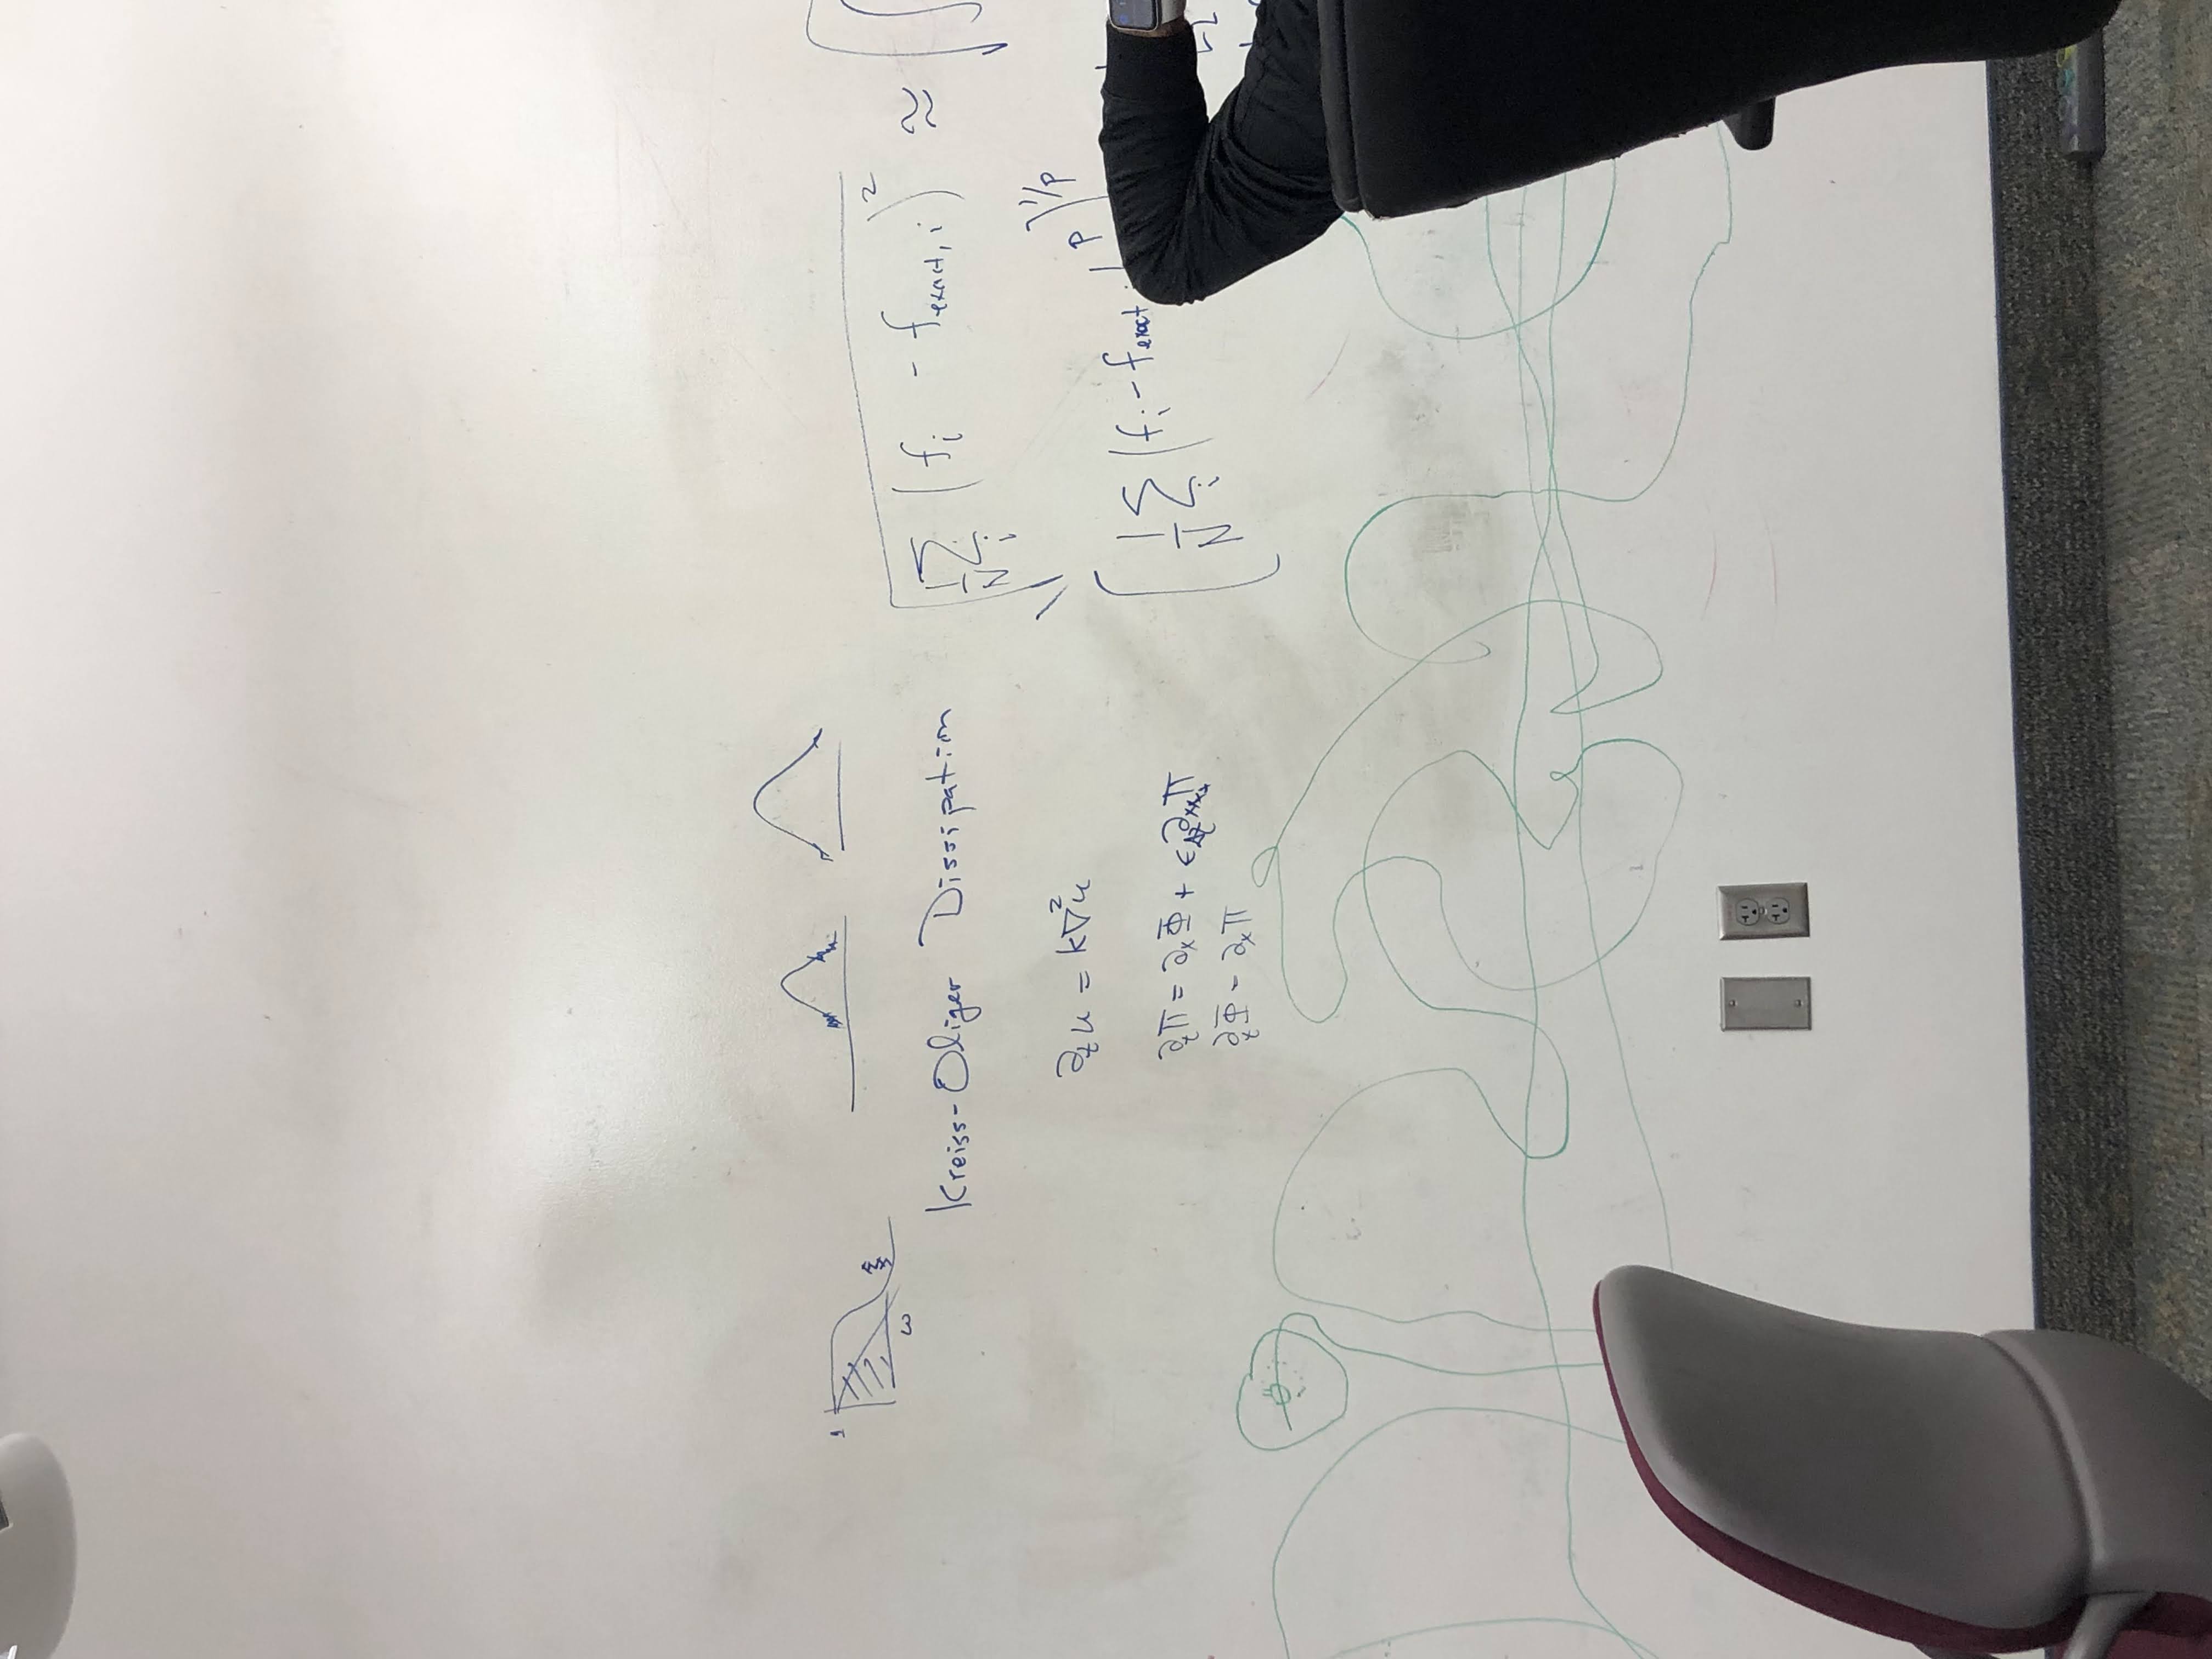 1
ω
Kreiss-Oliger Dissipation
∂ₜu = k∇²u
∂ₜΠ = ∂ₓΦ + ϵ
∂ₜΦ = ∂ₓΠ
√(1/N Σᵢ (fᵢ - f_exact,i)²) ≈ √∫
(1/N Σᵢ |fᵢ - f_exact,i|^p)^1/p